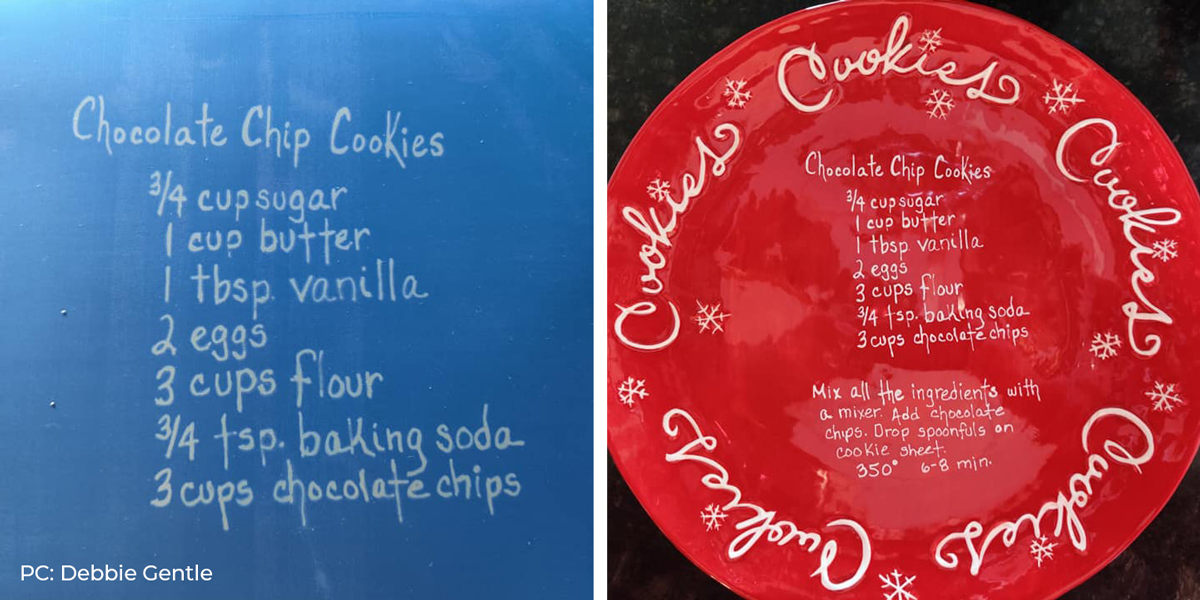 Chocolate Chip Cookies
3/4 cup sugar
1 cup butter
1 tbsp. vanilla
2 eggs
3 cups flour
3/4 tsp. baking soda
3 cups chocolate chips
PC: Debbie Gentle
Cookies
Cookies
Cookies
Cookies
Cookies
Cookies
Cookies
Chocolate Chip Cookies
3/4 cup sugar
1 cup butter
1 tbsp vanilla
2 eggs
3 cups flour
3/4 tsp. baking soda
3 cups chocolate chips
Mix all the ingredients with
a mixer. Add chocolate
chips. Drop spoonfuls on
cookie sheet.
350° 6-8 min.